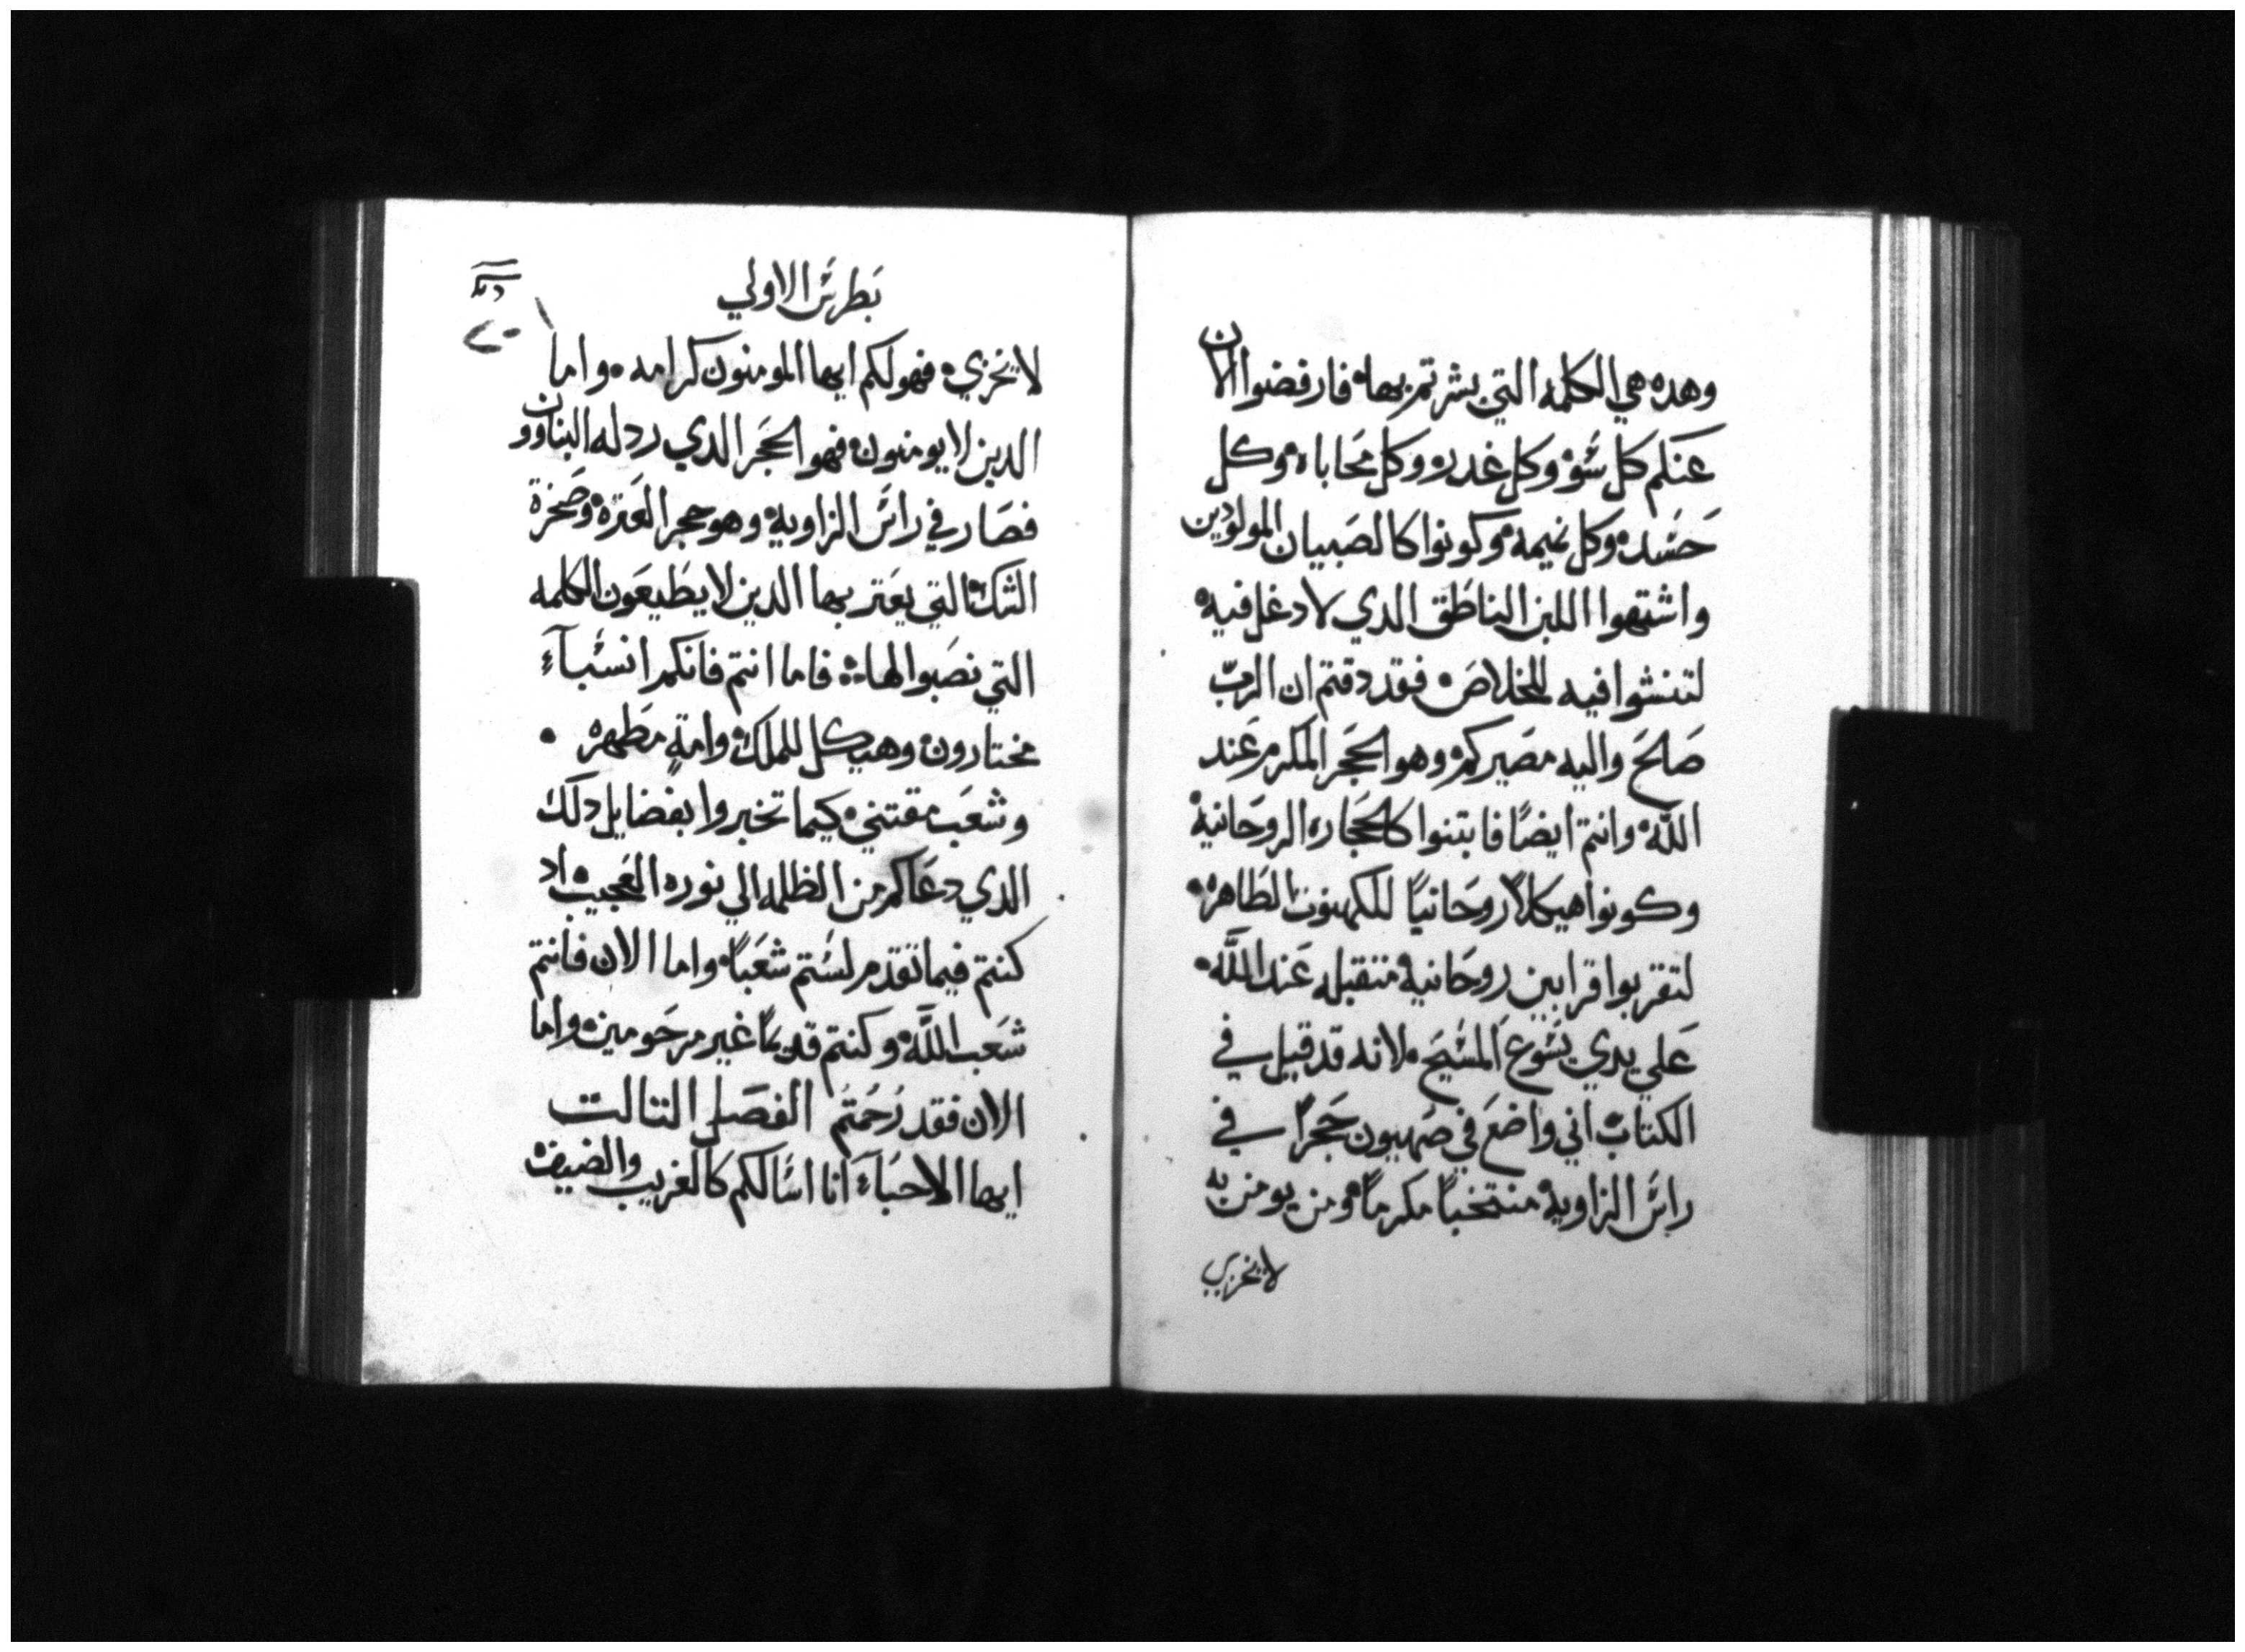 وهده هي الكلمه التي بشرتم بها، فارفضوا الان
عنكم كل شوء وكل غدر، وكل محاباه، وكل
حَسَد، وكل نميمه، وكونوا كالصَبيان المولودين
واشتهوا اللبن الناطق الدي لا دغل فيه
لتنشوا فيه للخلاص، فقد دقتم ان الربّ
صَالحَ واليه مصَيركم، وهو الحَجَر المكرم عَند
اللَّه، وانتم ايضًا فابتنوا كالحَجَاره الروحَانية
وكونوا هيكلاً روحَانياً للكهنوت الطَاهر،
لتقربوا قرابين روحَانية متقبله عَند اللَّه،
عَلي يدي يَسَوع المسَيحَ، لانه قد قيل في
الكتاب، اني واضعَ في صَهيون حَجَراً في
راسَ الزاوية، منتخباً مكرماً، ومن يومن به
لا يخزي
بَطرسَ الاولي
لا يخزي، فهو لكم ايها المومنون كرامه، واما
الدين لا يومنون، فهو الحَجَر الدي ردله البناوون
فصَار في راسَ الزاوية، وهو حجر العَترة، وصَخرة
الشك، التي يعَتر بها الدين لا يطَيعَون الكلمه
التي نصَبوا لها، فاما انتم فانكم انسَبآء
مختارون، وهيكل للملك، وامةٍ مطَهره،
وشعَب مقتني، كيما تخبروا بفضايل دلك
الدي دعَاكم من الظلمه الي نوره العَجيب، اد
كنتم فيما تقدم لسَتم شعَباً، واما الان فانتم
شعَب اللَّه، وكنتم قديماً غير مرحَومين، واما
الان فقد رُحَمتم الفصَل التالت
ايها الاحَبآء انا اسَالكم كالغريب والضيف،